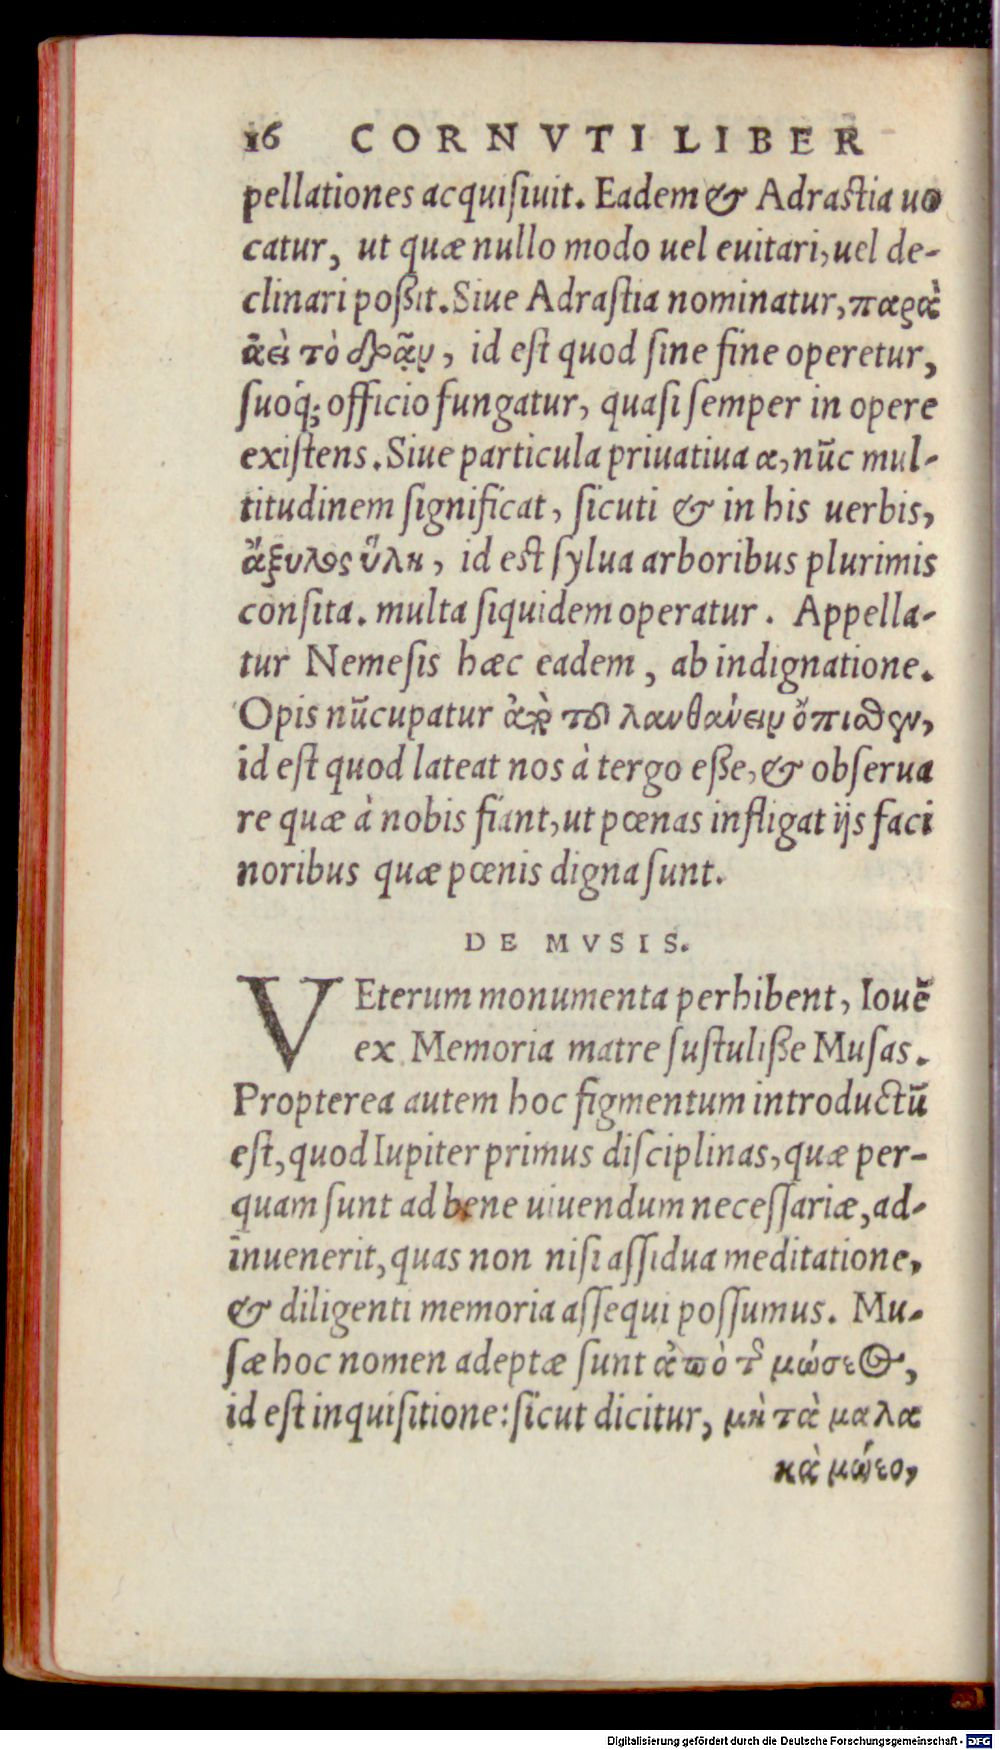 16 CORNVTI LIBER
pellationes acquisiuit. Eadem & Adrastia uo
catur, ut quæ nullo modo uel euitari, uel de-
clinari poßit. Siue Adrastia nominatur, παρὰ
ἀεὶ τὸ δρᾷν, id est quod sine fine operetur,
suoq́; officio fungatur, quasi semper in opere
existens. Siue particula priuatiua α, nūc mul-
titudinem significat, sicuti & in his uerbis,
ἄξυλος ὕλη, id est sylua arboribus plurimis
consita. multa siquidem operatur. Appella-
tur Nemesis hæc eadem, ab indignatione.
Opis nūcupatur ἀπὸ τοῦ λανθάνειν ὄπιθεν,
id est quod lateat nos à tergo eße, & obserua
re quæ à nobis fiant, ut pœnas infligat ijs faci
noribus quæ pœnis digna sunt.
DE MVSIS.
VEterum monumenta perhibent, Iouē
ex Memoria matre sustuliße Musas.
Propterea autem hoc figmentum introductū
est, quod Iupiter primus disciplinas, quæ per-
quam sunt ad bene uiuendum necessariæ, ad-
inuenerit, quas non nisi assidua meditatione,
& diligenti memoria assequi possumus. Mu-
sæ hoc nomen adeptæ sunt ἀπὸ τῆς μώσεως,
id est inquisitione: sicut dicitur, μὴ τὰ μαλα
κὰ μώεο,
Digitalisierung gefördert durch die Deutsche Forschungsgemeinschaft - DFG